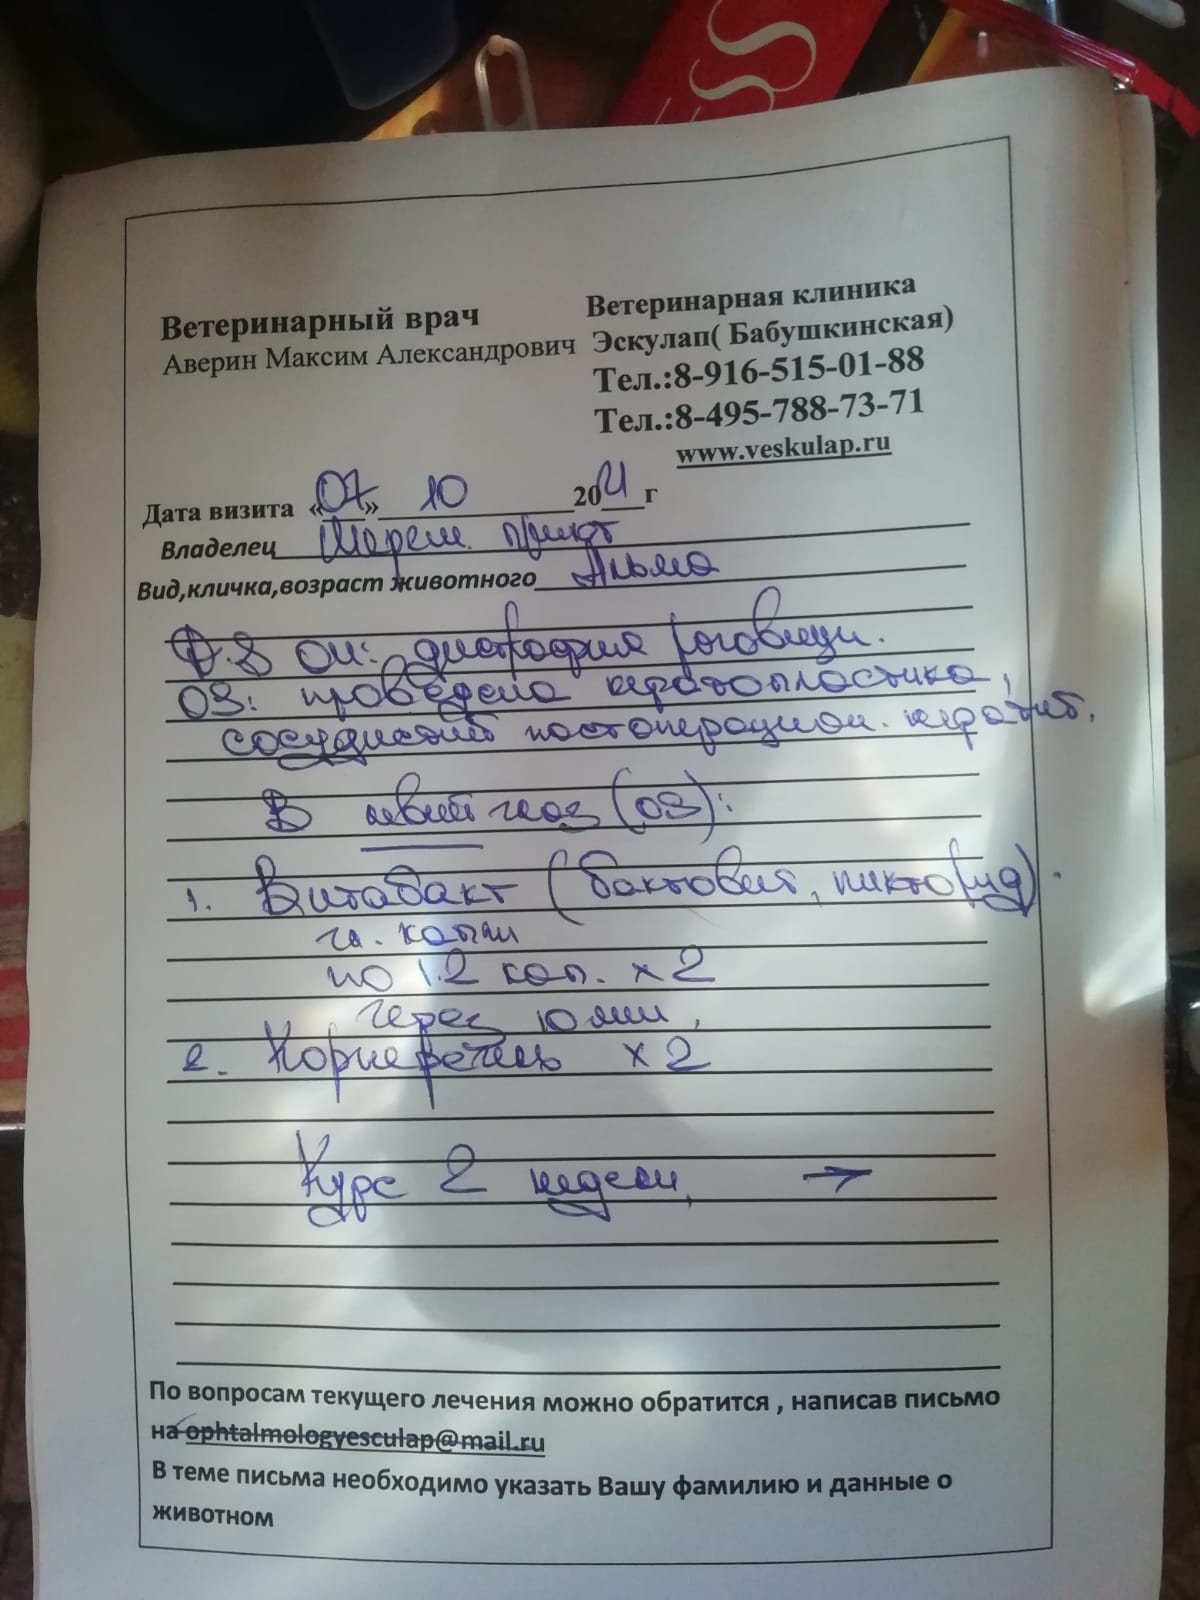 Ветеринарный врач
Аверин Максим Александрович
Ветеринарная клиника
Эскулап( Бабушкинская)
Тел.:8-916-515-01-88
Тел.:8-495-788-73-71
www.veskulap.ru
Дата визита «07» 10 2021 г
Владелец
Вид,кличка,возраст животного Альма
D.S OU: дистрофия роговицы.
OS: проведена кератопластика,
сосудистый постоперацион. кератит.
В левый глаз (OS):
1. Витабакт (бактовит, пиклоксид).
гл. капли
по 1.2 кап. x 2
через 10 мин,
2. Корнерегель x 2
Курс 2 недели, →
По вопросам текущего лечения можно обратится , написав письмо
на ophtalmologyesculap@mail.ru
В теме письма необходимо указать Вашу фамилию и данные о
животном